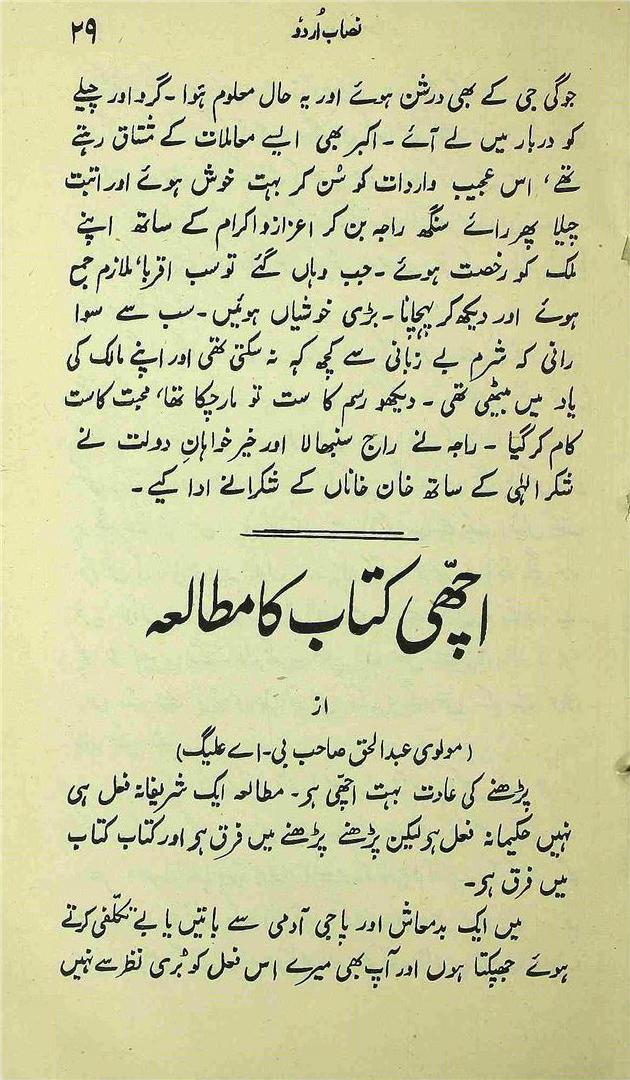 نصاب اُردو ۲۹
جوگی جی کے بھی درشن ہوئے اور یہ حال معلوم ہوا۔ گرو اور چیلے
کو دربار میں لے آئے۔ اکبر بھی ایسے معاملات کے مشتاق رہتے
تھے، اس عجیب واردات کو سُن کر بہت خوش ہوئے اور اتیت
چیلا پھر رائے سنگھ راجہ بن کر اعزاز و اکرام کے ساتھ اپنے
ملک کو رخصت ہوئے۔ جب وہاں گئے تو سب اقربا، ملازم جمع
ہوئے اور دیکھ کر پہچانا۔ بڑی خوشیاں ہوئیں۔ سب سے سوا
رانی کہ شرمِ بے زبانی سے کچھ کہہ نہ سکتی تھی اور اپنے مالک کی
یاد میں بیٹھی تھی۔ دیکھو رسم کا ست تو مار چکا تھا، محبت کا ست
کام کر گیا۔ راجہ نے راج سنبھالا اور خیر خواہانِ دولت نے
شکر الٰہی کے ساتھ خان خاناں کے شکرانے ادا کیے۔
اچّھی کتاب کا مطالعہ
از
(مولوی عبدالحق صاحب بی۔اے علیگ)
پڑھنے کی عادت بہت اچّھی ہو۔ مطالعہ ایک شریفانہ فعل ہی
نہیں حکیمانہ فعل ہو لیکن پڑھنے پڑھنے میں فرق ہو اور کتاب کتاب
میں فرق ہو۔
میں ایک بدمعاش اور پاجی آدمی سے باتیں یا بے تکلّفی کرتے
ہوئے جھپکتا ہوں اور آپ بھی میرے اس فعل کو بُری نظر سے نہیں